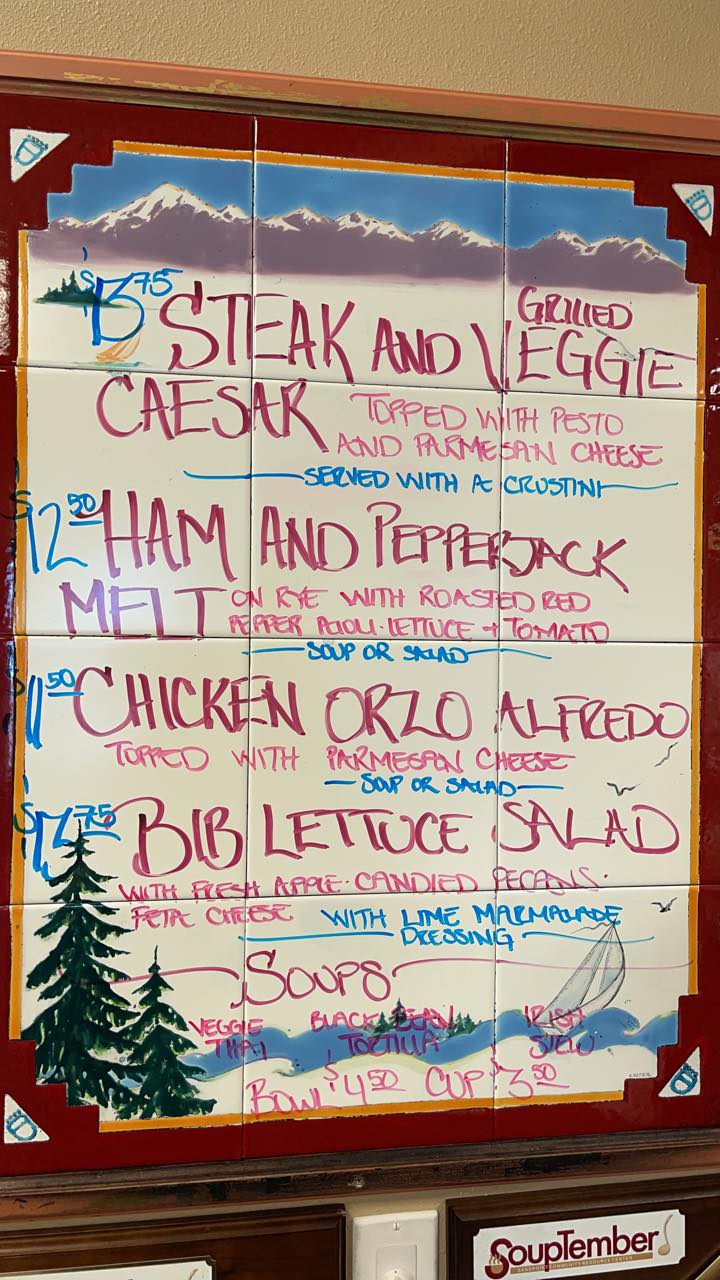 $13.75 STEAK AND GRILLED VEGGIE
CAESAR TOPPED WITH PESTO
AND PARMESAN CHEESE
SERVED WITH A CRUSTINI
$12.50 HAM AND PEPPERJACK
MELT ON RYE WITH ROASTED RED
PEPPER AIOLI · LETTUCE + TOMATO
SOUP OR SALAD
$11.50 CHICKEN ORZO ALFREDO
TOPPED WITH PARMESAN CHEESE
SOUP OR SALAD
$12.75 BIB LETTUCE SALAD
WITH FRESH APPLE · CANDIED PECANS ·
FETA CHEESE WITH LIME MARMALADE
DRESSING
SOUPS
VEGGIE THAI
BLACK BEAN TORTILLA
IRISH STEW
BOWL $4.50 CUP $3.50
SoupTember
SANDPOINT COMMUNITY RESOURCE CENTER